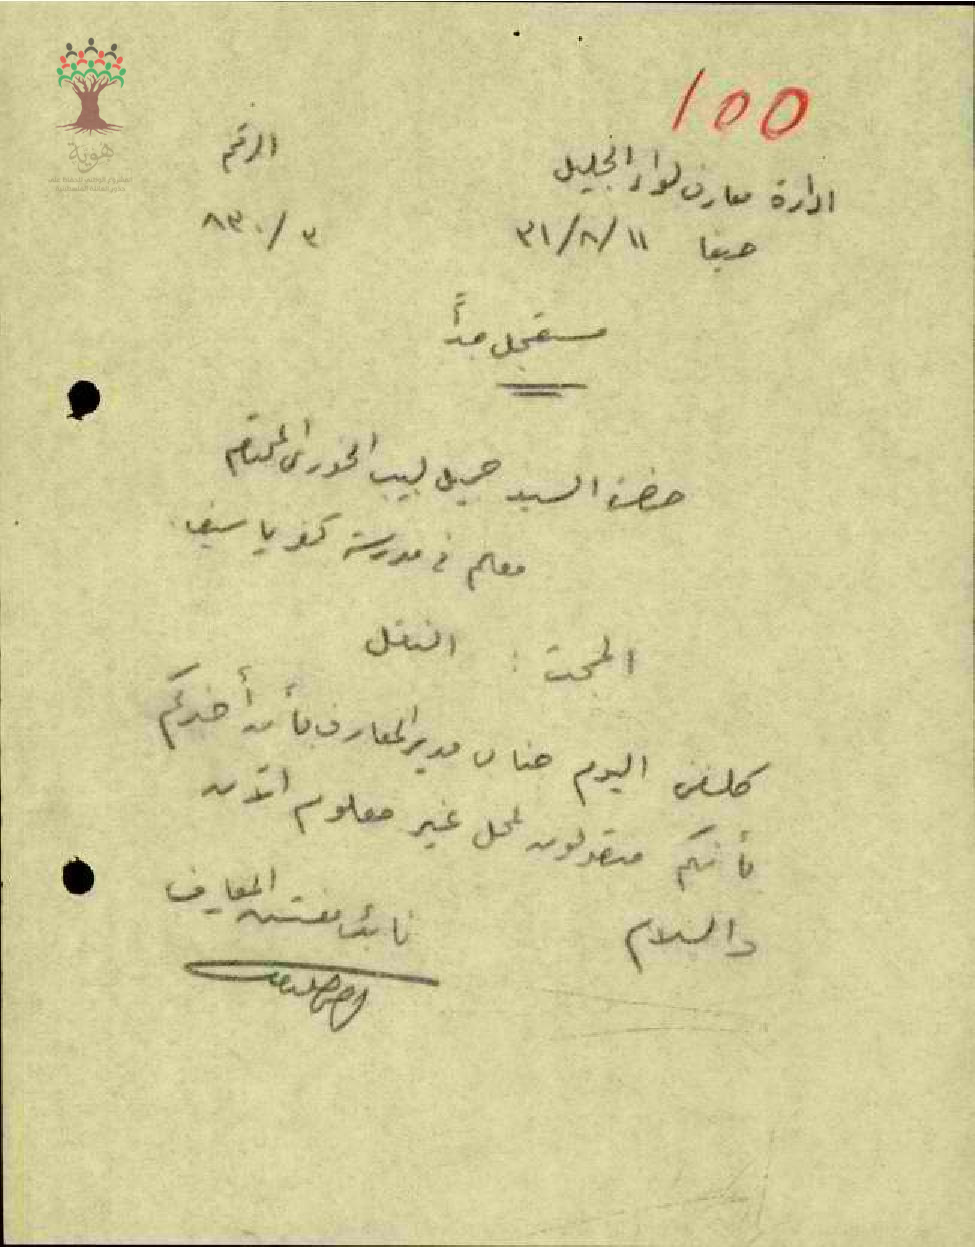 100
هوية
المشروع الوطني للحفاظ على
جذور العائلة الفلسطينية
ادارة معارف لواء الجليل الرقم
حيفا ١١/٨/٣١ ٣/٨٣٠
مستعجل جداً
حضرة السيد جميل لبيب الخوري المحترم
معلم في مدرسة كفر ياسيف
المبحث : النقل
كلفني اليوم جناب مدير المعارف بأن أخبركم
بأنكم منقولون لمحل غير معلوم الآن
والسلام نائب مفتش المعارف